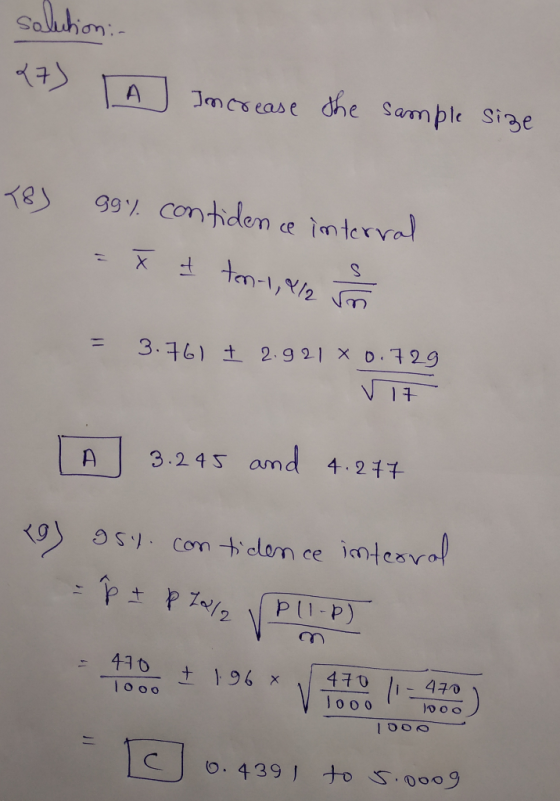 Solution:-
(7) A Increase the sample size
(8) 99% confidence interval
= x̄ ± tn-1, α/2 s/√n
= 3.761 ± 2.921 × 0.729/√17
A 3.245 and 4.277
(9) 95% confidence interval
= p̂ ± p Zα/2 √(p(1-p)/n)
= 470/1000 ± 1.96 × √(470/1000 (1 - 470/1000)/1000)
= C 0.4391 to 5.0009